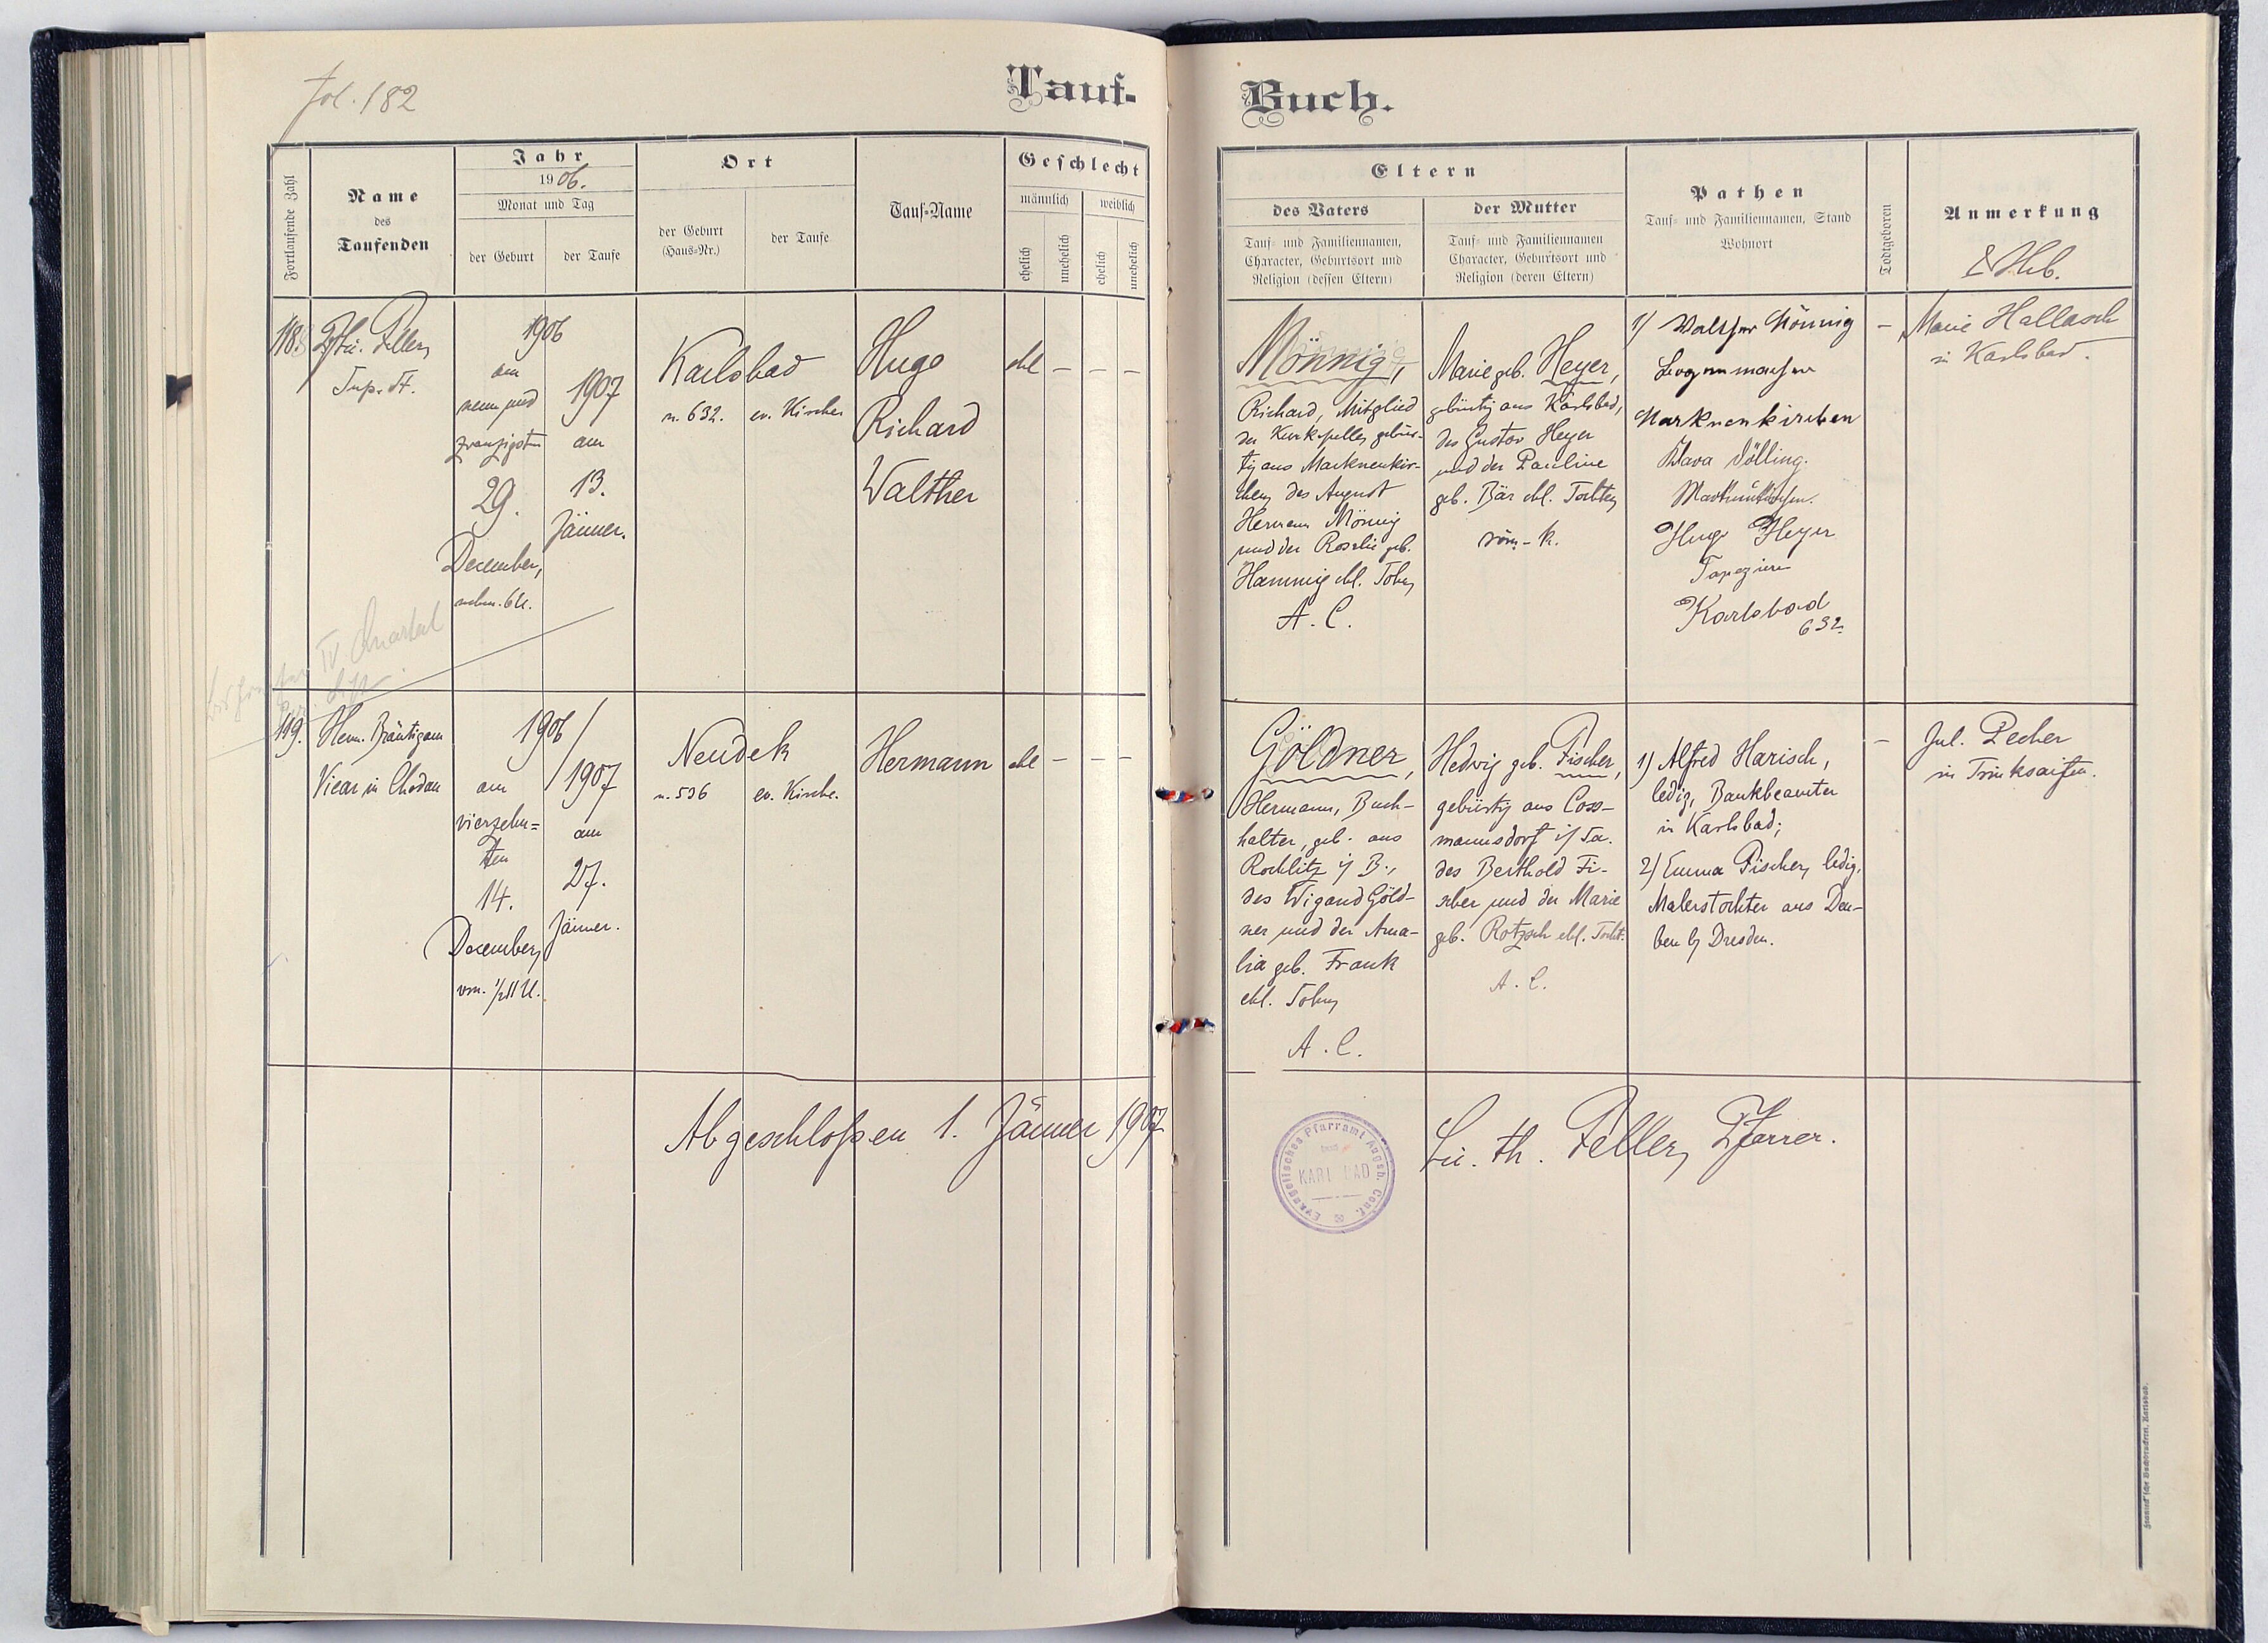 Fol. 182
Tauf-
Buch.
Fortlaufende Zahl
Name
des
Taufenden
Jahr
1906.
Monat und Tag
der Geburt
der Taufe
Ort
der Geburt
(Haus-Nr.)
der Taufe
Tauf-Name
Geschlecht
männlich
weiblich
ehelich
unehelich
ehelich
unehelich
Eltern
des Vaters
Tauf- und Familiennamen,
Character, Geburtsort und
Religion (dessen Eltern)
der Mutter
Tauf- und Familiennamen
Character, Geburtsort und
Religion (deren Eltern)
Pathen
Tauf- und Familiennamen, Stand
Wohnort
Todtgeboren
Anmerkung
& Heb.
118.
Feller,
1906
am
neun und
zwanzigsten
29.
December,
nchm. 6 U.
1907
am
13.
Jänner.
Karlsbad
n. 632.
ev. Kirche
Hugo
Richard
Walther
ehl
–
–
–
Mönnig,
Richard, Mitglied
der Kurkapelle, gebür-
tig aus Markneukir-
chen, des August
Hermann Mönnig
und der Rosalie geb.
Hammig ehl. Sohn,
A. C.
Marie geb. Heyer,
gebürtig aus Karlsbad,
des Gustav Heyer
und der Pauline
geb. Bär ehl. Tochter,
röm-k.
1) Walther Mönnig
Bogenmacher
Markneukirchen
Klara Dölling.
Markneukirchen.
Hugo Heyer
Tapezierer
Karlsbad
632.
–
Marie Hallasch
in Karlsbad.
IV. Quartal
119.
Herm. Bräutigam
Vicar in Chodau
1906/
am
vierzehn=
ten
14.
December,
vm. 1/2 11 U.
/1907
am
27.
Jänner.
Neudek
n. 536
ev. Kirche.
Hermann
ehl
–
–
–
Göldner,
Hermann, Buch-
halter, geb. aus
Rochlitz i/ B.,
des Wigand Göld-
ner und der Ama-
lia geb. Frank
ehl. Sohn,
A. C.
Hedwig geb. Fischer,
gebürtig aus Coss-
mannsdorf i/ Sa.
des Berthold Fi-
scher und der Marie
geb. Rotzsch ehl. Tocht.
A. C.
1) Alfred Harisch,
ledig, Bankbeamter
in Karlsbad;
2) Emma Fischer, ledig,
Malerstochter aus Deu-
ben b/ Dresden.
–
Jul. Pecher
in Trinksaifen.
Abgeschloßen 1. Jänner 1907
Evangelisches Pfarramt Augsb. Conf.
KARLSBAD
Lic. th. Feller, Pfarrer.